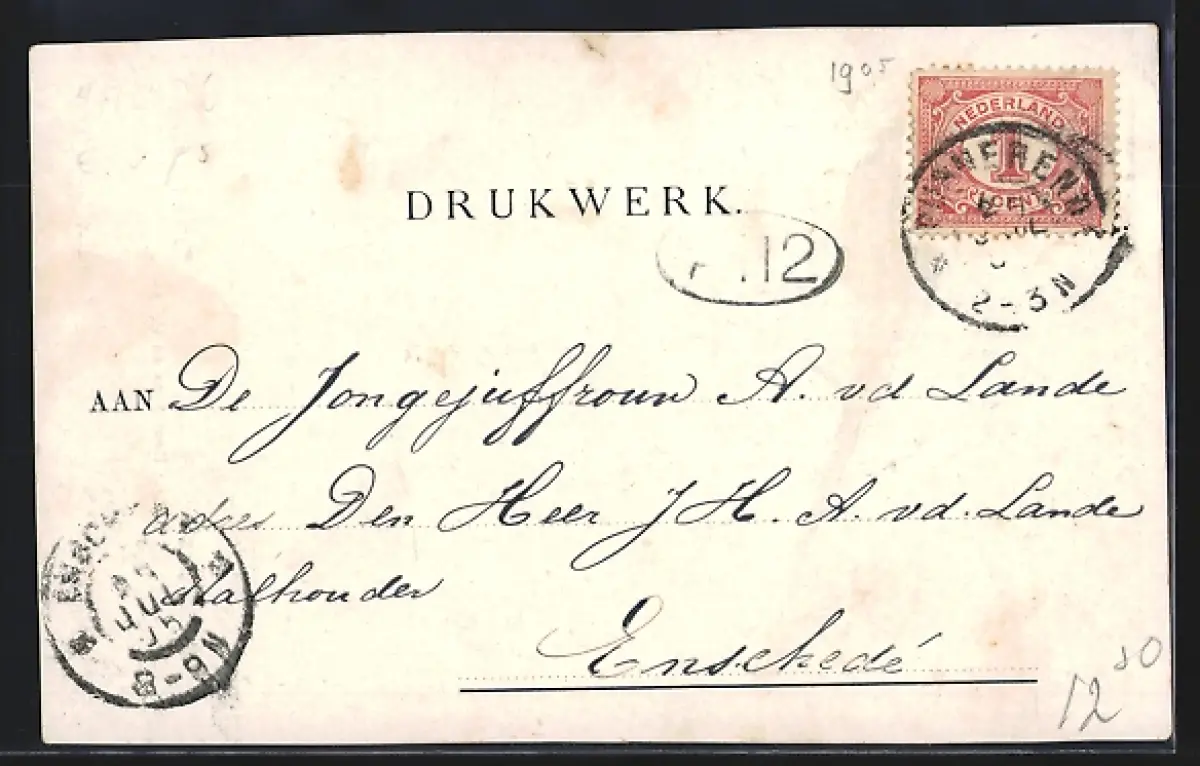 1905
NEDERLAND
1
CENT
2-3N
DRUKWERK.
.12
AAN De Jongejuffrouw A. vd Lande
adres Den Heer J H. A. vd. Lande
stalhouder
Enschedé
JUL
05
8-9N
12 80